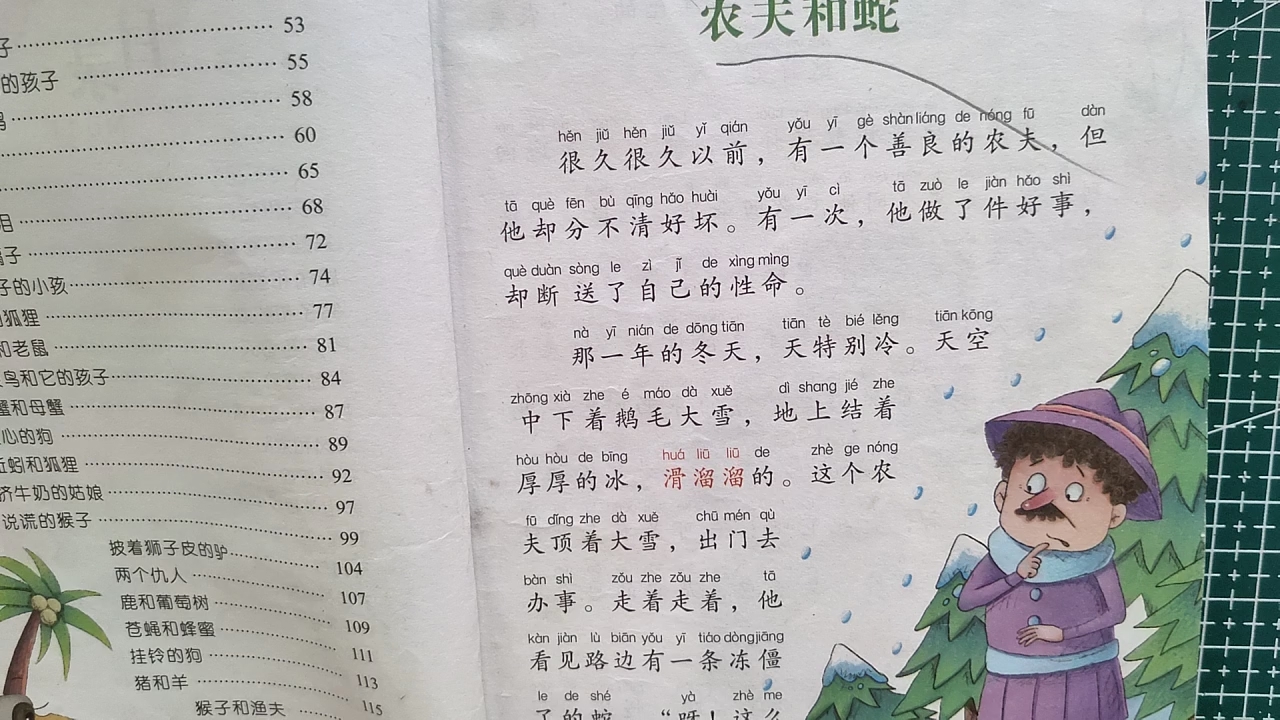 子 53
的孩子 55
58
60
65
68
子 72
子的小孩 74
狐狸 77
和老鼠 81
鸟和它的孩子 84
蟹和母蟹 87
心的狗 89
蚯蚓和狐狸 92
挤牛奶的姑娘 97
说谎的猴子 99
披着狮子皮的驴 104
两个仇人 107
鹿和葡萄树 109
苍蝇和蜂蜜 111
挂铃的狗 113
猪和羊 115
猴子和渔夫
农夫和蛇
hěn jiǔ hěn jiǔ yǐ qián yǒu yī gè shàn liáng de nóng fū dàn
很久很久以前，有一个善良的农夫，但
tā què fēn bù qīng hǎo huài yǒu yī cì tā zuò le jiàn hǎo shì
他却分不清好坏。有一次，他做了件好事，
què duàn sòng le zì jǐ de xìng mìng
却断送了自己的性命。
nà yī nián de dōng tiān tiān tè bié lěng tiān kōng
那一年的冬天，天特别冷。天空
zhōng xià zhe é máo dà xuě dì shang jié zhe
中下着鹅毛大雪，地上结着
hòu hòu de bīng huá liū liū de zhè ge nóng
厚厚的冰，滑溜溜的。这个农
fū dǐng zhe dà xuě chū mén qù
夫顶着大雪，出门去
bàn shì zǒu zhe zǒu zhe tā
办事。走着走着，他
kàn jiàn lù biān yǒu yī tiáo dòng jiāng
看见路边有一条冻僵
le de shé yà zhè me
了的蛇。“呀！这么